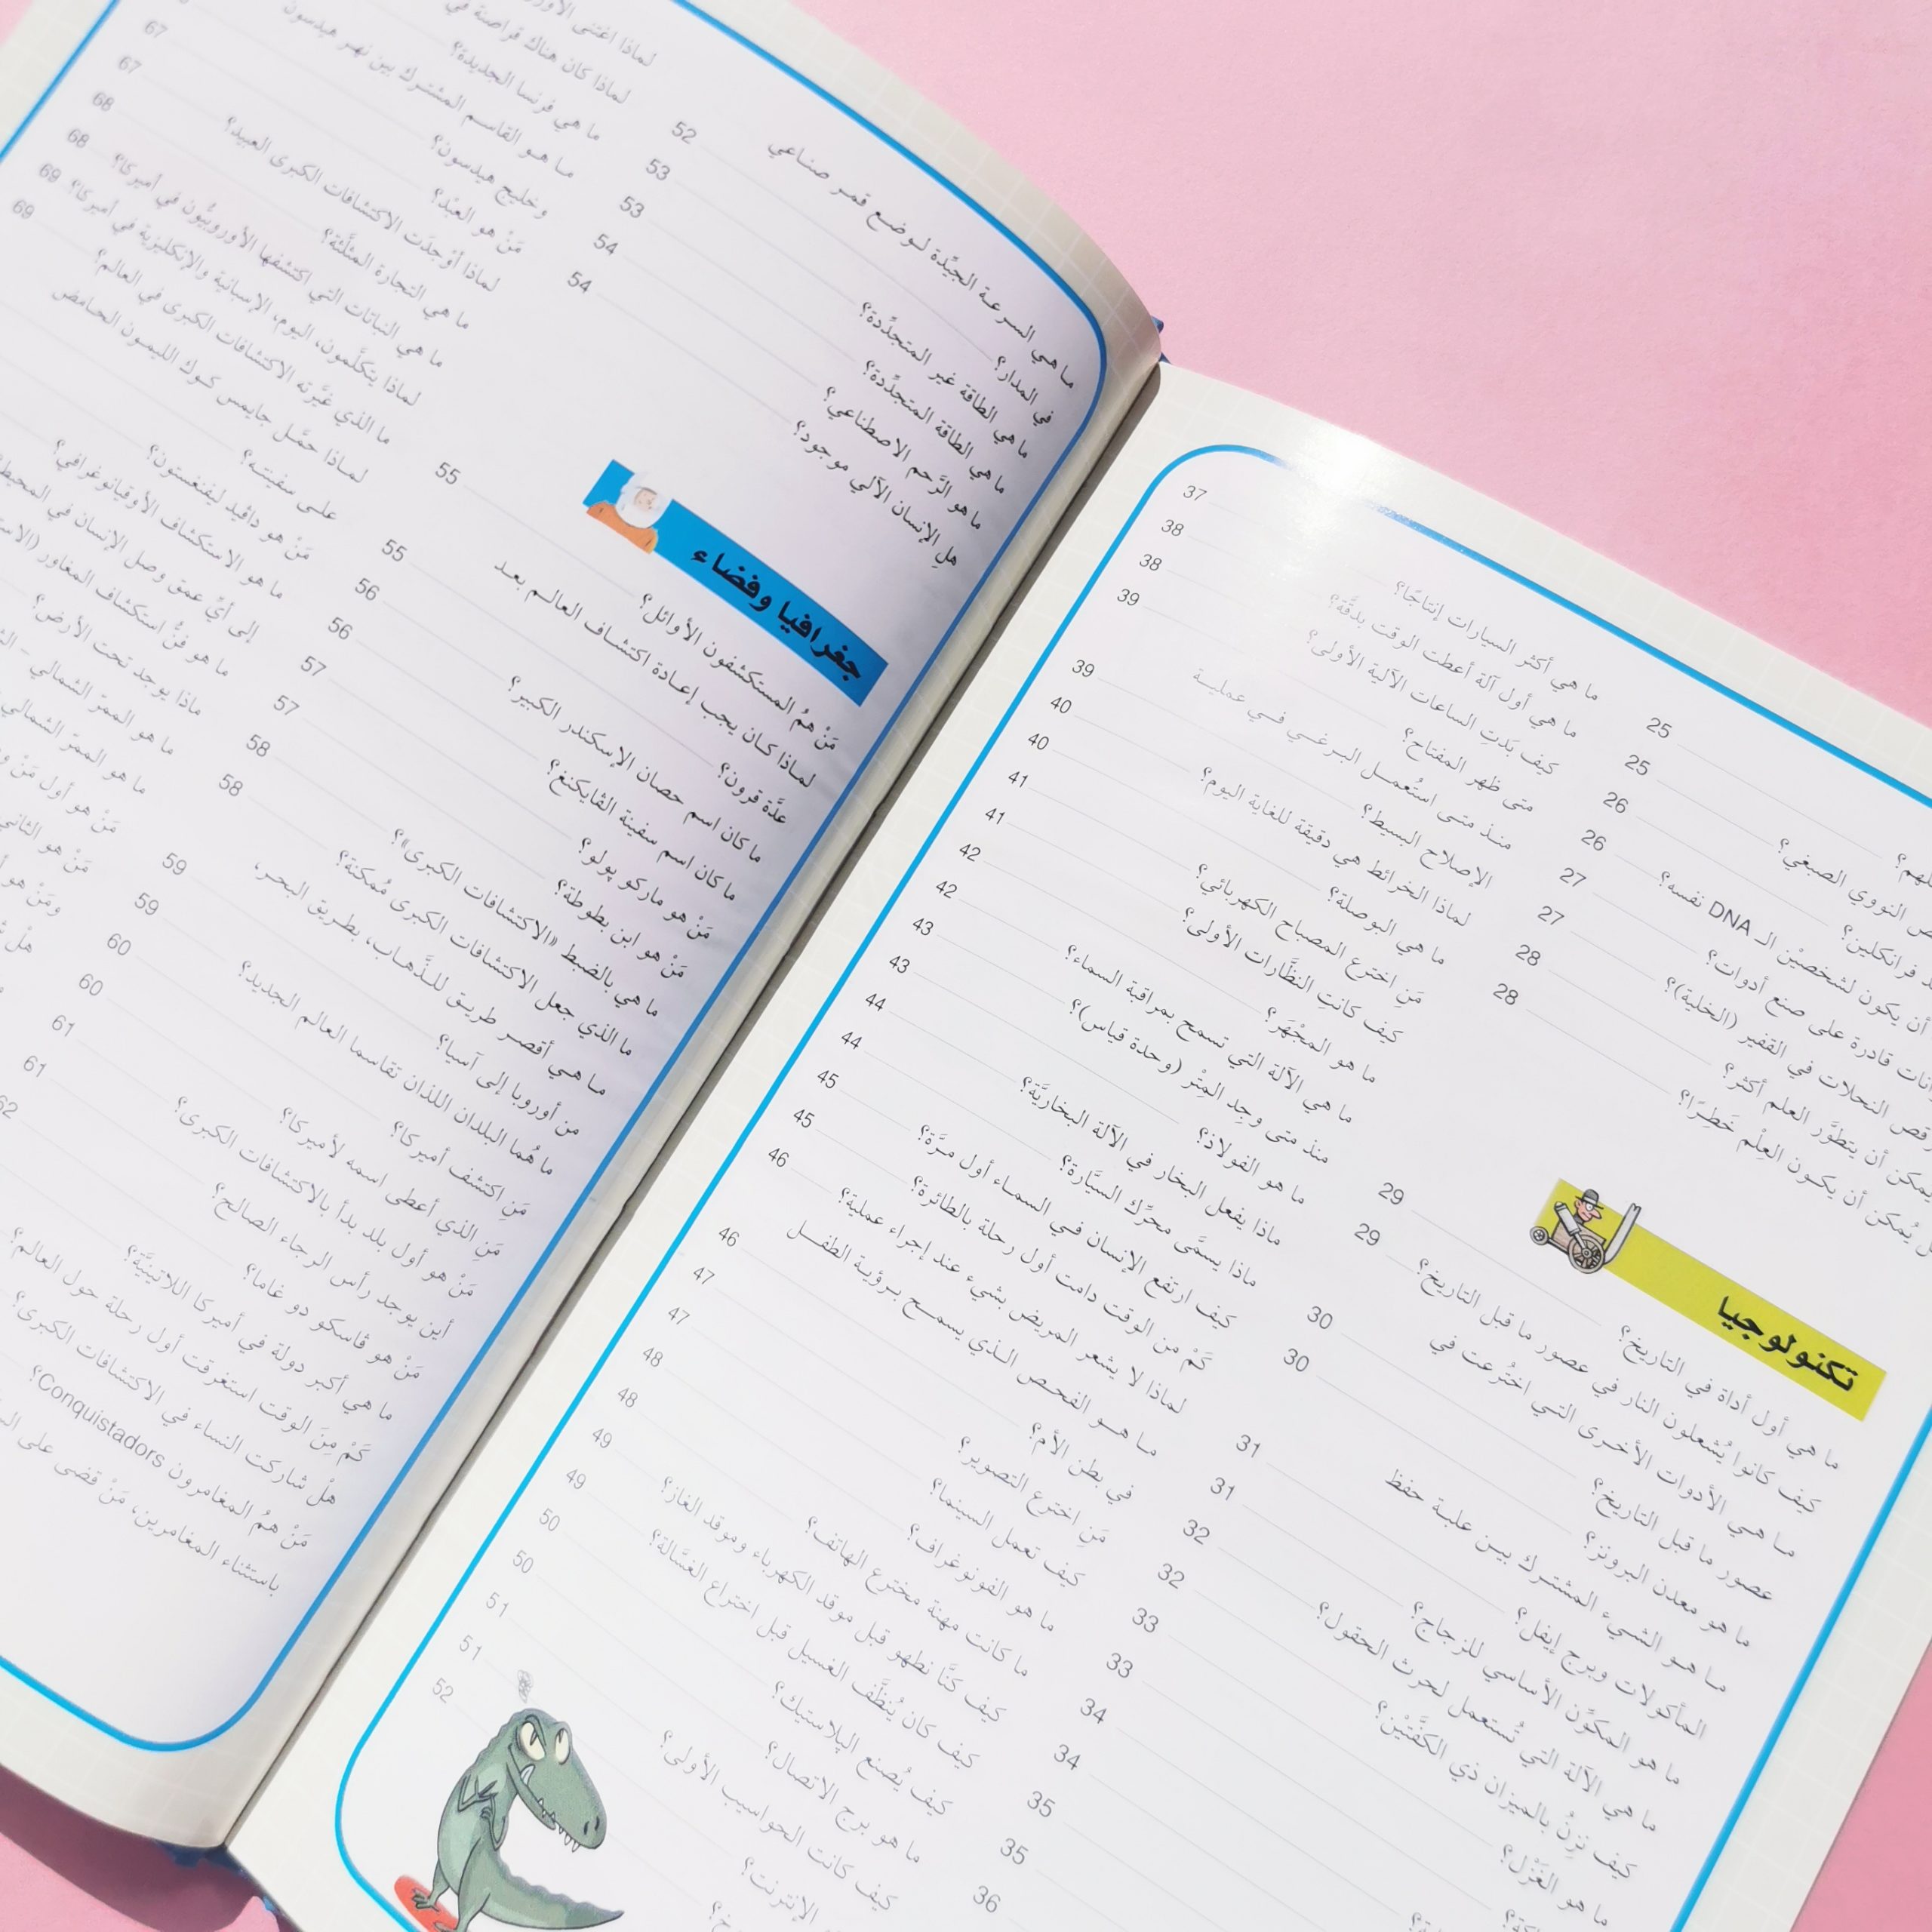 النووي الصبغي؟ 25
فرانكلين؟ 26
أن يكون لشخصيْن الـ DNA نفسه؟ 26
قادرة على صنع أدوات؟ 27
رقص النحلات في القفير (الخلية)؟ 27
يمكن أن يتطوَّر العلم أكثر؟ 28
يُمكن أن يكون العِلْم خَطِرًا؟ 28
تكنولوجيا
ما هي أول أداة في التاريخ؟ 29
كيف كانوا يُشعلون النار في عصور ما قبل التاريخ؟ 29
ما هي الأدوات الأخرى التي اختُرعت في
عصور ما قبل التاريخ؟ 30
ما هو معدن البرونز؟ 30
ما هو الشيء المشترك بين علبة حفظ
المأكولات وبرج إيفل؟ 31
ما هو المكوِّن الأساسي للزجاج؟ 31
ما هي الآلة التي تُستعمل لحرث الحقول؟ 32
كيف نزِنُ بالميزان ذي الكفَّتيْن؟ 32
ما هو الغَزْل؟ 33
33
34
34
35
35
36
ما هي أكثر السيارات إنتاجًا؟ 37
ما هي أول آلة أعطت الوقت بدقَّة؟ 38
كيف بَدتِ الساعات الآلية الأولى؟ 38
متى ظهر المفتاح؟ 39
منذ متى استُعمل البرغي في عملية
الإصلاح البسيط؟ 39
لماذا الخرائط هي دقيقة للغاية اليوم؟ 40
ما هي البوصلة؟ 40
مَنِ اخترع المصباح الكهربائي؟ 41
كيف كانتِ النظَّارات الأولى؟ 41
ما هو المجْهَر؟ 42
ما هي الآلة التي تسمح بمراقبة السماء؟ 42
منذ متى وجِد المِتْر (وحدة قياس)؟ 43
ما هو الفولاذ؟ 43
ماذا يفعل البخار في الآلة البخاريَّة؟ 44
ماذا يسمَّى محرِّك السيَّارة؟ 44
كيف ارتفع الإنسان في السماء أول مرَّة؟ 45
كَمْ من الوقت دامت أول رحلة بالطائرة؟ 45
لماذا لا يشعر المريض بشيء عند إجراء عملية؟ 46
ما هو الفحص الذي يسمح برؤية الطفل
في بطن الأم؟ 46
مَنِ اخترع التصوير؟ 47
كيف تعمل السينما؟ 47
ما هو الفونوغراف؟ 48
ما كانت مهنة مخترع الهاتف؟ 48
كيف كنَّا نطهو قبل موقد الكهرباء وموقد الغاز؟ 49
كيف كان يُنظَّف الغسيل قبل اختراع الغسَّالة؟ 49
كيف يُصنع البلاستيك؟ 50
ما هو برج الاتصال؟ 50
كيف كانت الحواسيب الأولى؟ 51
الإنترنت؟ 51
52
ما هي السرعة الجيِّدة لوضع قمر صناعي
في المدار؟ 52
ما هي الطاقة غير المتجدِّدة؟ 53
ما هي الطاقة المتجدِّدة؟ 53
ما هو الرَّحم الاصطناعي؟ 54
هلِ الإنسان الآلي موجود؟ 54
جغرافيا وفضاء
مَنْ همُ المستكشفون الأوائل؟ 55
لماذا كان يجب إعادة اكتشاف العالم بعد
عدَّة قرون؟ 55
ما كان اسم حصان الإسكندر الكبير؟ 56
ما كان اسم سفينة الڤايكنغ؟ 56
مَنْ هو ماركو پولو؟ 57
مَنْ هو ابن بطوطة؟ 57
ما هي بالضبط «الاكتشافات الكبرى»؟ 58
ما الذي جعل الاكتشافات الكبرى مُمكنة؟ 58
ما هي أقصر طريق للذَّهاب، بطريق البحر،
من أوروبا إلى آسيا؟ 59
ما هُما البلدان اللذان تقاسما العالم الجديد؟ 59
مَنِ اكتشف أميركا؟ 60
مَنِ الذي أعطى اسمه لأميركا؟ 60
مَنْ هو أول بلد بدأ بالاكتشافات الكبرى؟ 61
أين يوجد رأس الرجاء الصالح؟ 61
مَنْ هو ڤاسكو دو غاما؟ 62
ما هي أكبر دولة في أميركا اللاتينيَّة؟
كَمْ مِنَ الوقت استغرقت أول رحلة حول العالم؟
هلْ شاركت النساء في الاكتشافات الكبرى؟
مَنْ همُ المغامرون Conquistadors؟
باستثناء المغامرين، مَنْ قضى على
لماذا اغتنى
لماذا كان هناك قراصنة في
ما هي فرنسا الجديدة؟
ما هو القاسم المشترك بين نهر هيدسون
وخليج هيدسون؟ 67
مَنْ هو العبْد؟ 67
لماذا أوْجدَت الاكتشافات الكبرى العبيد؟ 68
ما هي التجارة المثلَّثة؟ 68
ما هي النباتات التي اكتشفها الأوروبيُّون في أميركا؟ 69
لماذا يتكلَّمون، اليوم، الإسبانية والإنكليزية في أميركا؟ 69
ما الذي غيَّرته الاكتشافات الكبرى في العالم؟
لماذا حمَّل جايمس كوك الليمون الحامض
على سفينته؟
مَنْ هو داڤيد ليفنغستون؟
ما هو الاستكشاف الأوقيانوغرافي؟
إلى أيِّ عمق وصل الإنسان في المحيط
ما هو فنُّ استكشاف المغاور
ماذا يوجد تحت الأرض؟
ما هو الممرّ الشمالي-
ما هو الممرّ الشمالي
مَنْ هو أول مَنْ
مَنْ هو الثاني
ومَنْ هو
هلْ